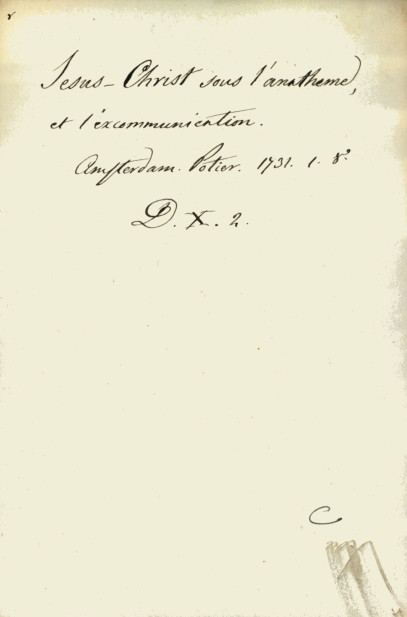 Jesus-Christ sous l'anatheme,
et l'éxcommunication.
Amsterdam. Potier. 1731. 1. 8°.
D. X. 2.
C